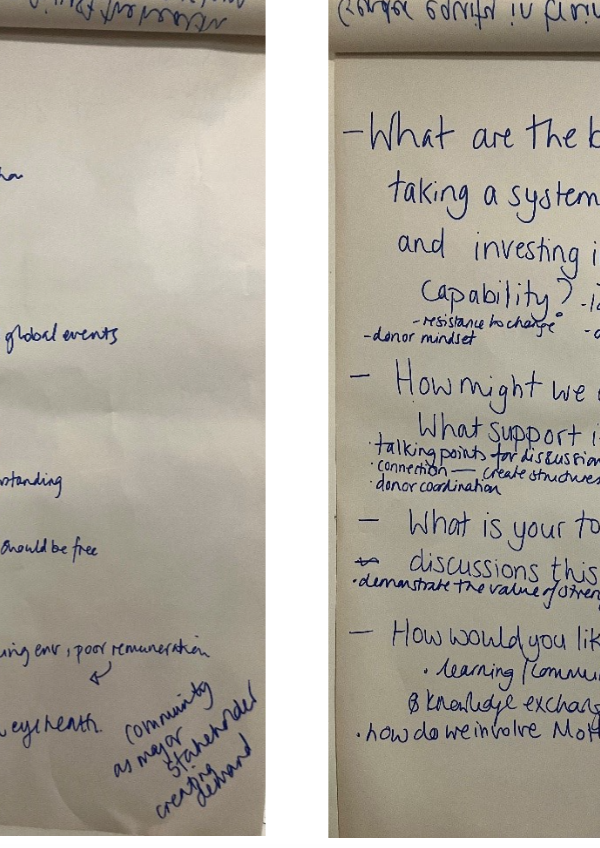 global events
should be free
env, poor remuneration
eye health.
community
as major
stakeholder
creating
demand
- What are the b
taking a system
and investing i
capability?
- resistance to change
- donor mindset
- How might we
What support i
· talking points for discussion
· connection — create structures
· donor coordination
- What is your to
discussions this
· demonstrate the value of stren
- How would you lik
· learning / commu
& knowledge exchang
· how do we involve MoH